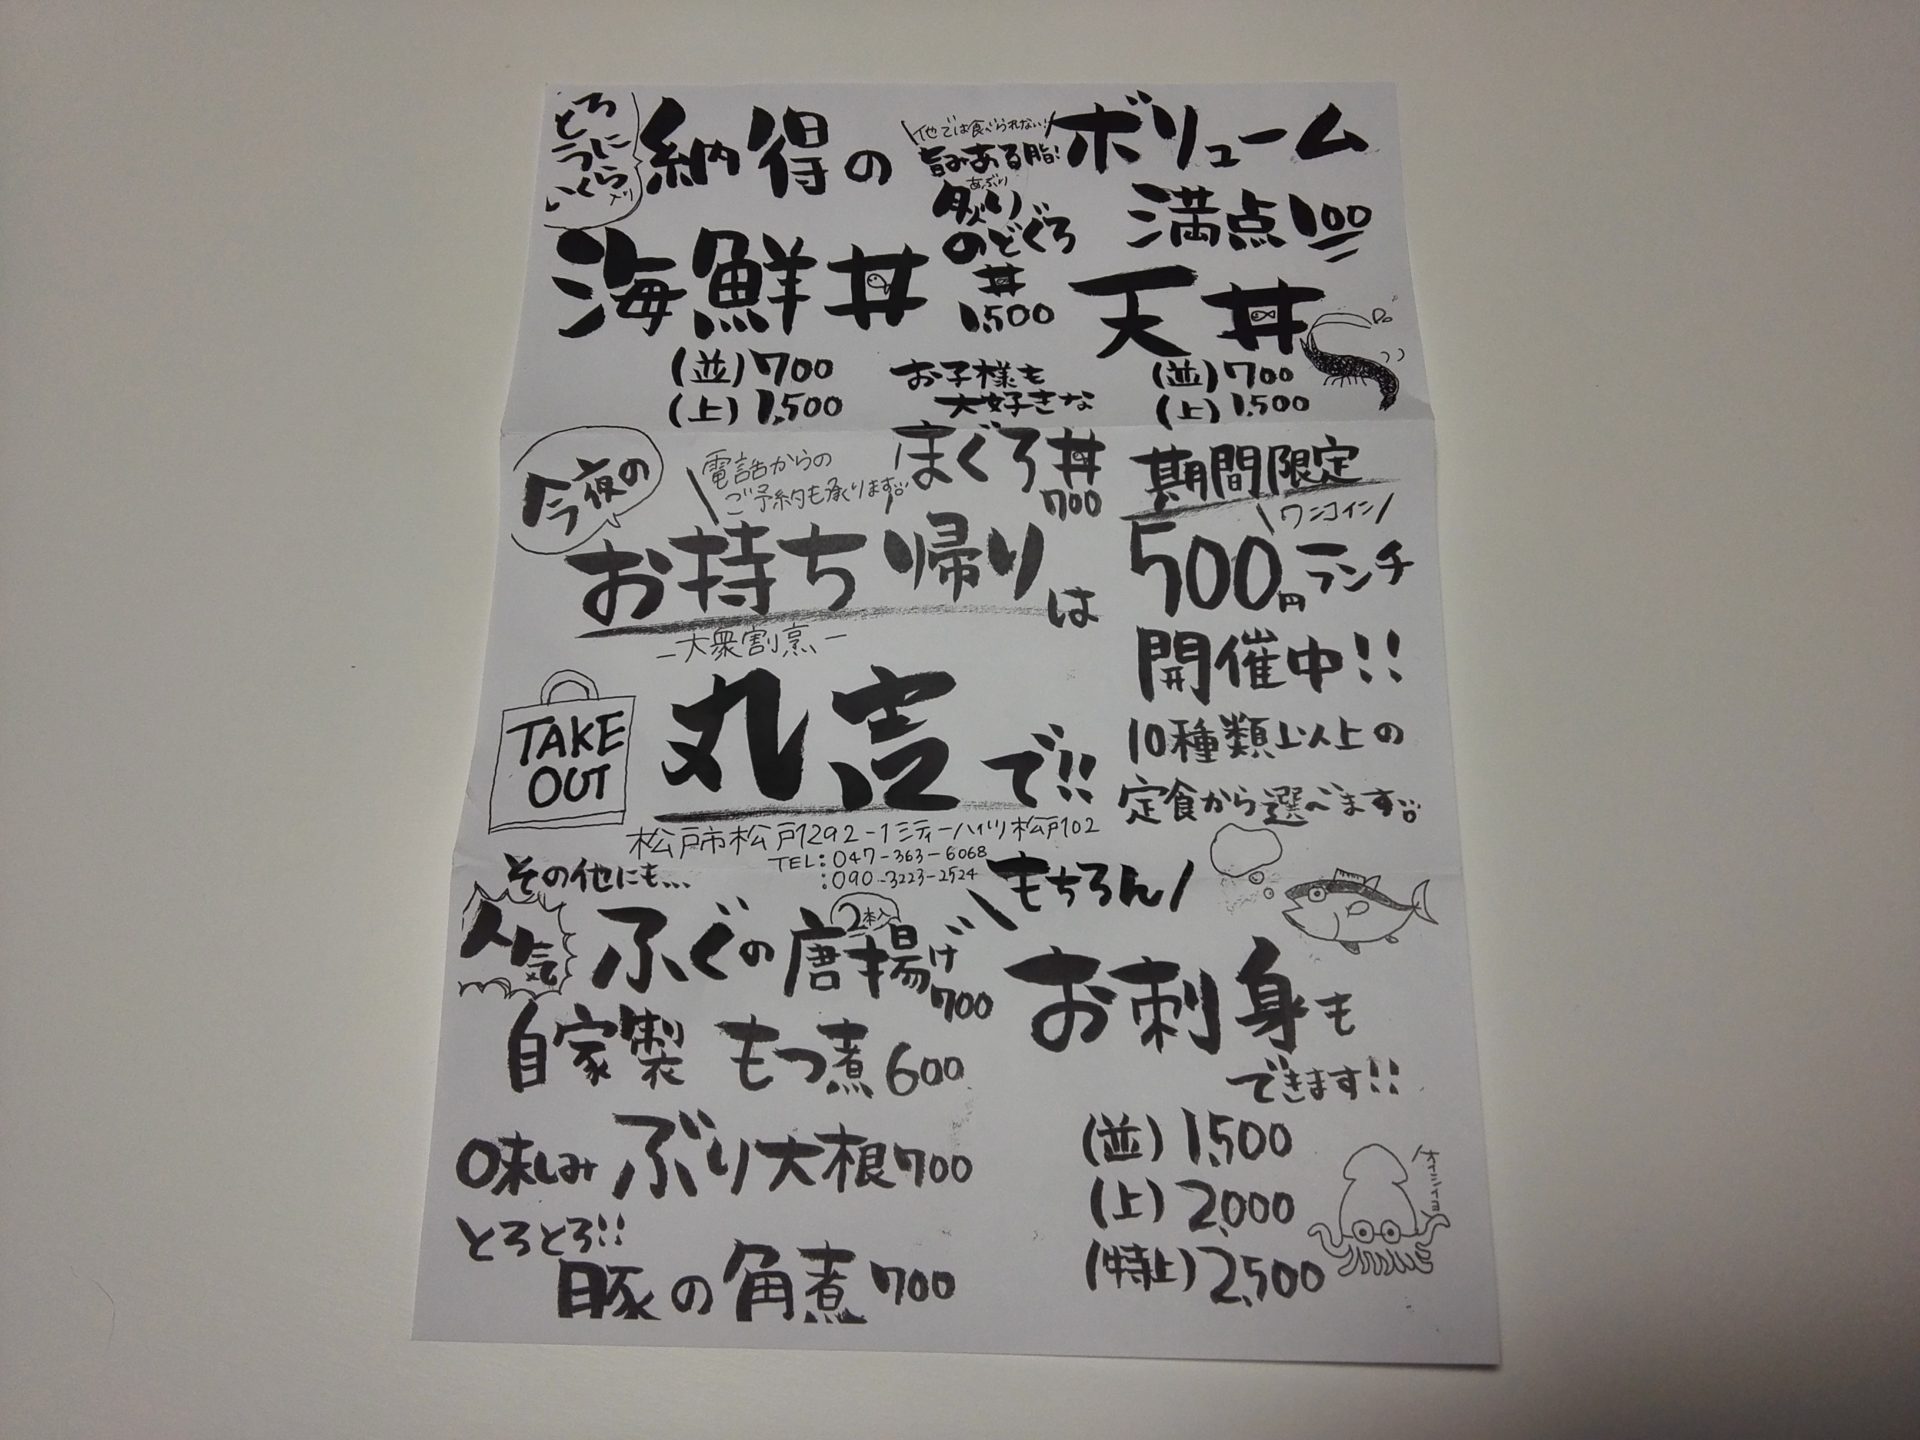 とろ
うに
いくら入り
納得の
海鮮丼
(並)700
(上)1,500
他では食べられない!
旨みある脂!
あぶり
炙り
のどぐろ
丼
1,500
ボリューム
満点100
天丼
(並)700
(上)1,500
お子様も
大好きな
まぐろ丼
700
今夜の
電話からの
ご予約も承ります
お持ち帰りは
ー大衆割烹ー
丸吉で!!
TAKE
OUT
松戸市松戸1292-1シティーハイツ松戸102
TEL:047-363-6068
:090-3223-2524
期間限定
ワンコイン
500円ランチ
開催中!!
10種類以上の
定食から選べます
その他にも...
人気
ふぐの唐揚げ
2本入
700
自家製もつ煮600
味しみぶり大根700
とろとろ!!
豚の角煮700
もちろん
お刺身も
できます!!
(並)1,500
(上)2,000
(特上)2,500